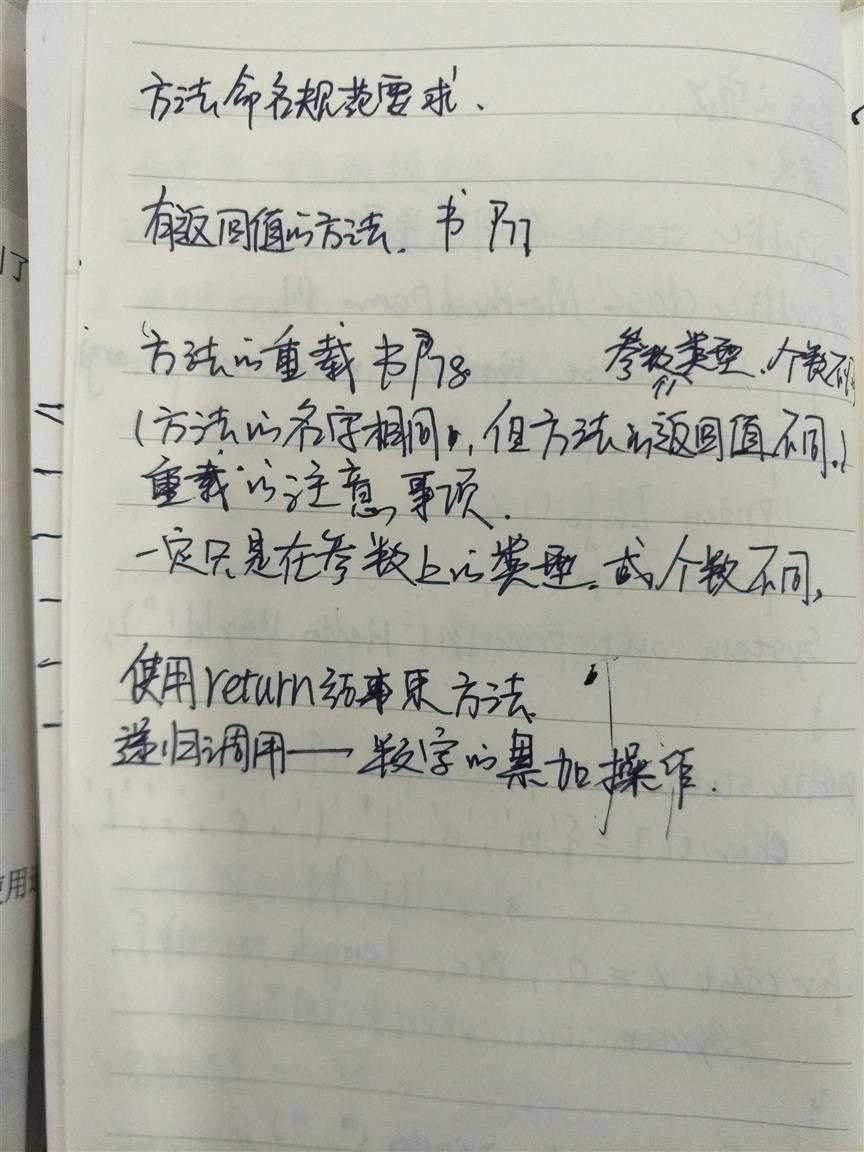 方法命名规范要求.
有返回值的方法. 书 P77
方法的重载 书P78 参数类型.个数不同
(方法的名字相同, 但方法的返回值不同.)
重载的注意事项.
一定只是在参数上的类型.或个数不同,
使用return结束方法
递归调用——数字的累加操作.